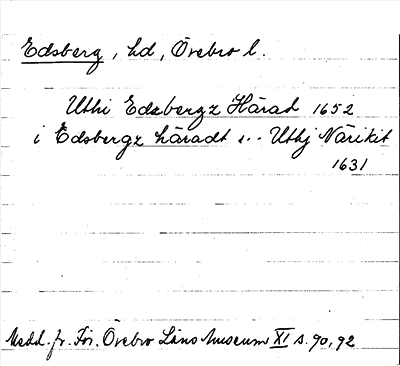 Edsberg, hd, Örebro l.
Uthi Edzbergz Härad 1652
i Edsbergz häradt ... Uthj Närikit
1631
Medd. fr. För. Örebro Läns Museum XI s. 90, 92